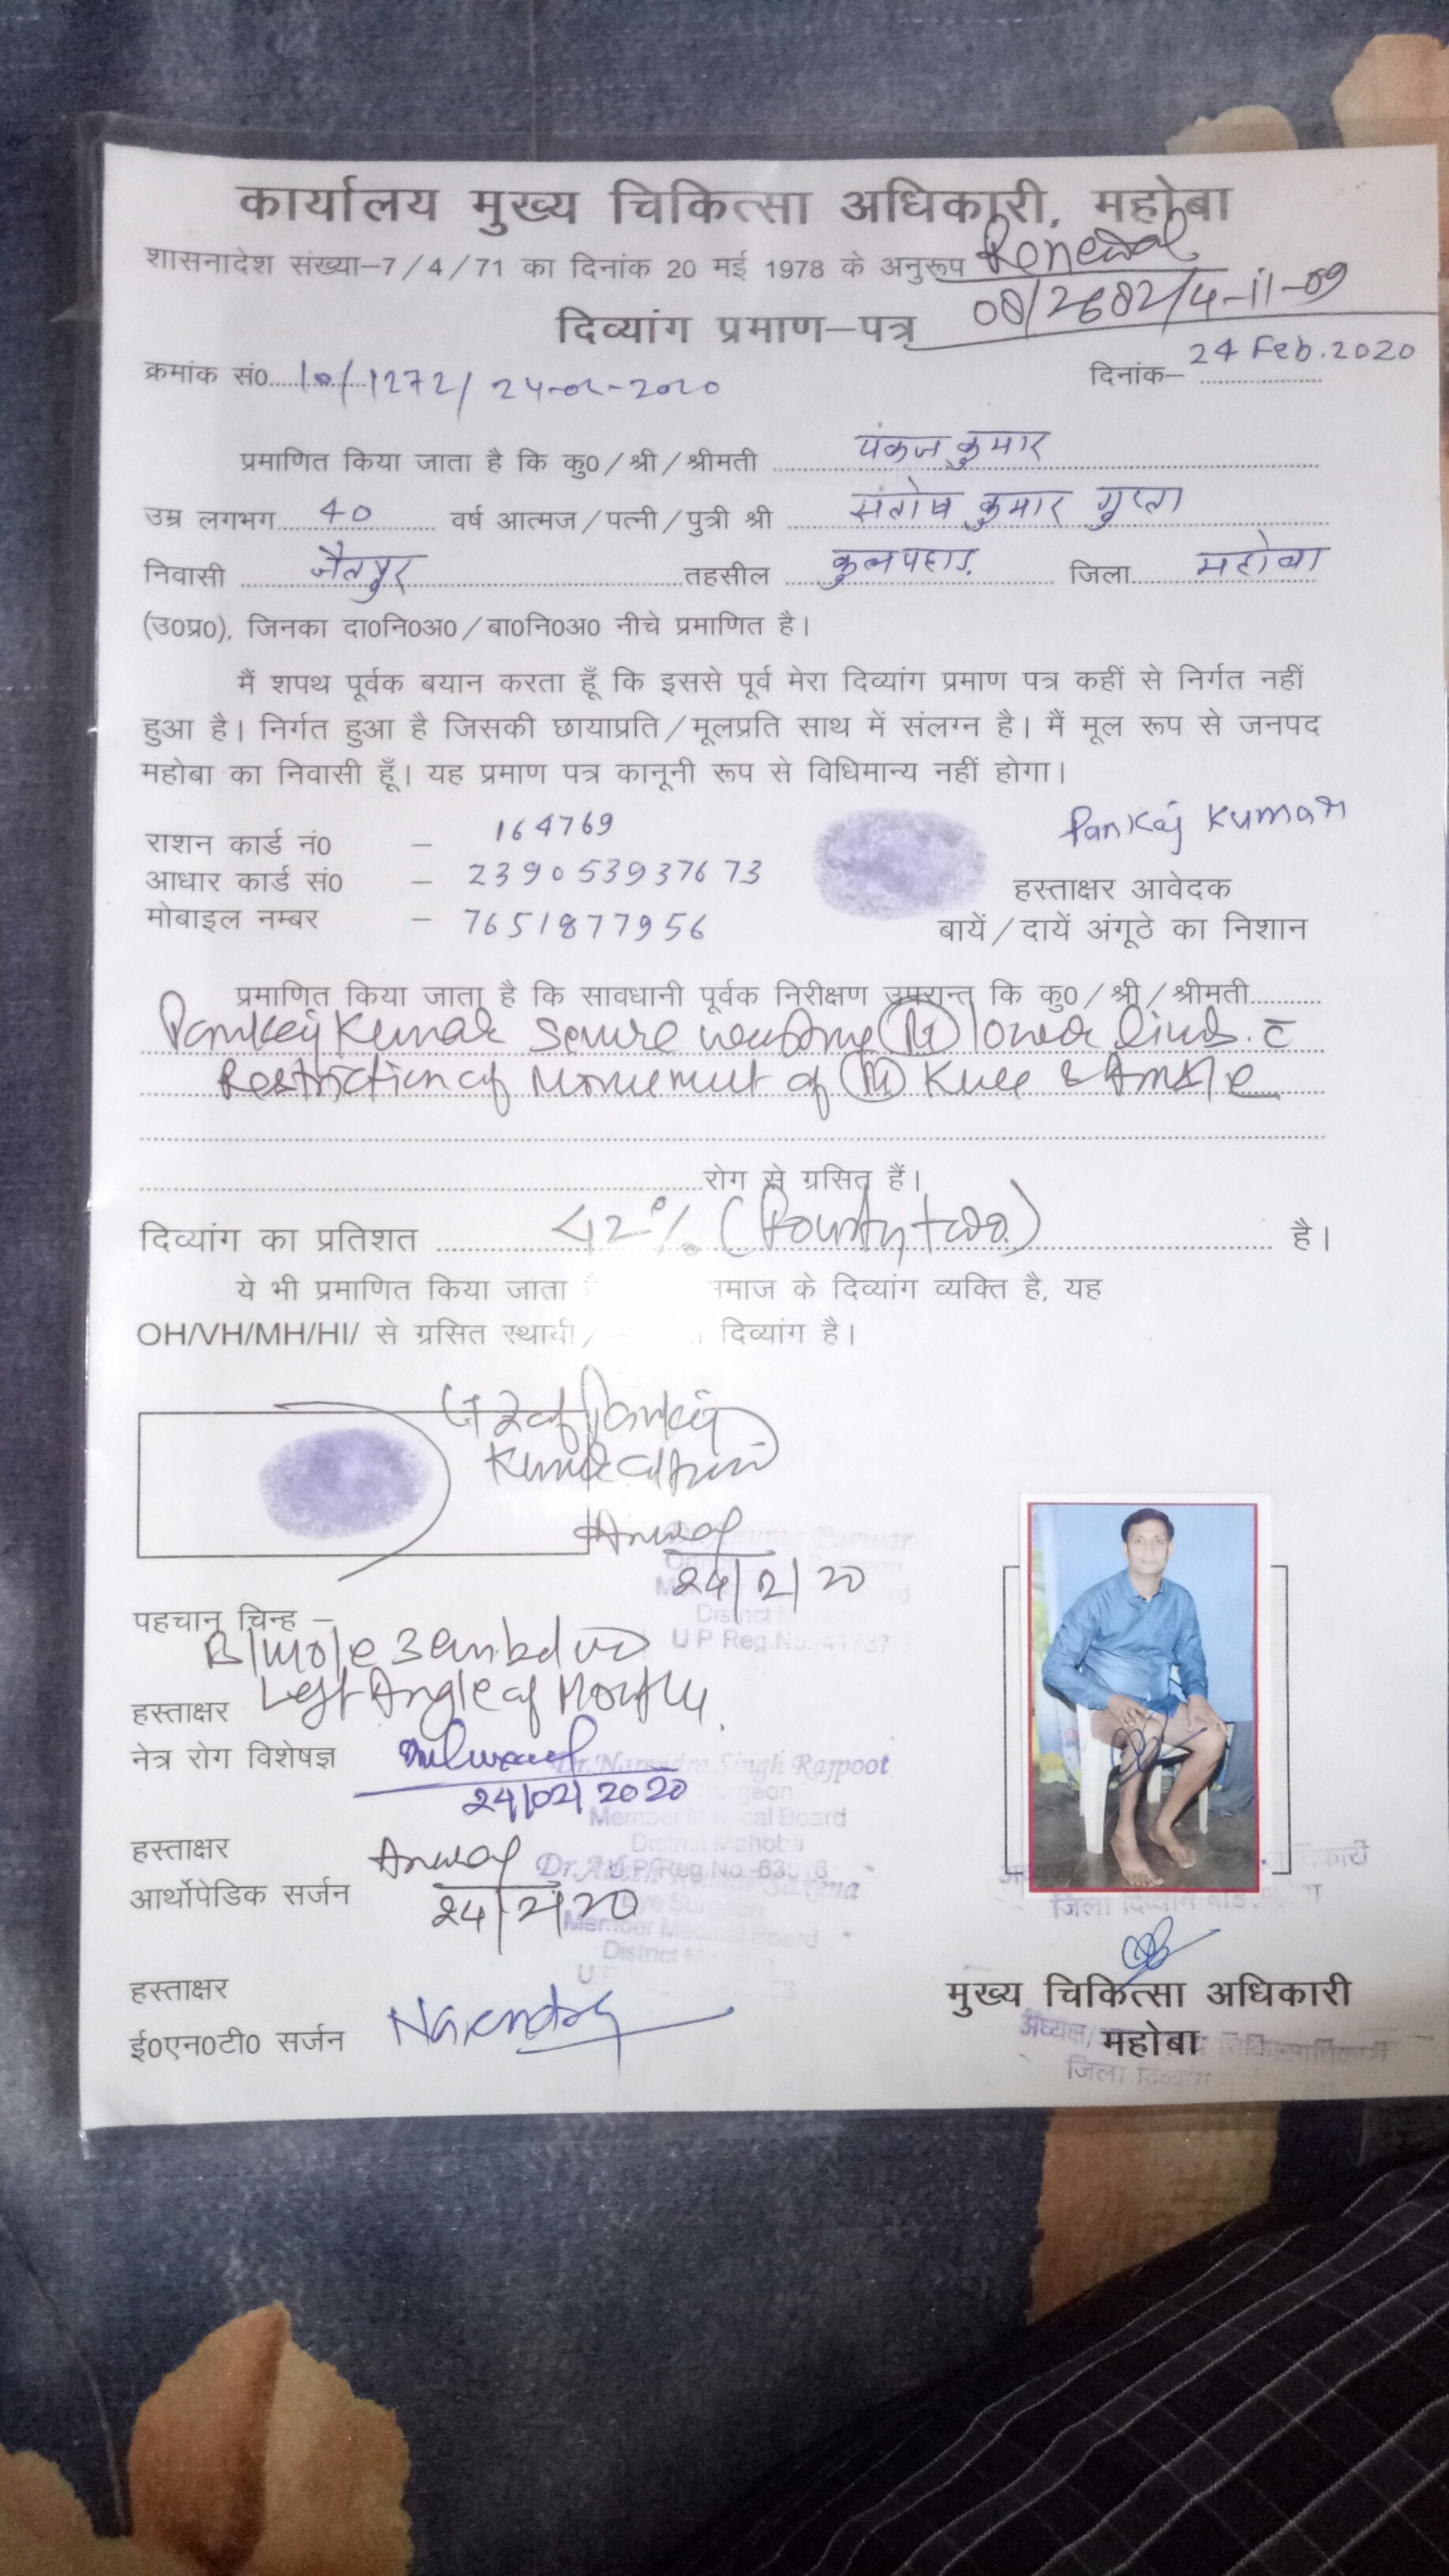 कार्यालय मुख्य चिकित्सा अधिकारी, महोबा
शासनादेश संख्या–7/4/71 का दिनांक 20 मई 1978 के अनुरूप Renewal
08/2682/4-11-09
दिव्यांग प्रमाण–पत्र
क्रमांक सं0 10/1272/24-02-2020 दिनांक– 24 Feb.2020
प्रमाणित किया जाता है कि कु0/श्री/श्रीमती पंकज कुमार
उम्र लगभग 40 वर्ष आत्मज/पत्नी/पुत्री श्री संतोष कुमार गुप्ता
निवासी जैतपुर तहसील कुलपहाड़ जिला महोबा
(उ0प्र0), जिनका दा0नि0अ0/बा0नि0अ0 नीचे प्रमाणित है।
मैं शपथ पूर्वक बयान करता हूँ कि इससे पूर्व मेरा दिव्यांग प्रमाण पत्र कहीं से निर्गत नहीं
हुआ है। निर्गत हुआ है जिसकी छायाप्रति/मूलप्रति साथ में संलग्न है। मैं मूल रूप से जनपद
महोबा का निवासी हूँ। यह प्रमाण पत्र कानूनी रूप से विधिमान्य नहीं होगा।
राशन कार्ड नं0 – 164769
आधार कार्ड सं0 – 239053937673
मोबाइल नम्बर – 7651877956
Pankaj Kumar
हस्ताक्षर आवेदक
बायें/दायें अंगूठे का निशान
प्रमाणित किया जाता है कि सावधानी पूर्वक निरीक्षण उपरान्त कि कु0/श्री/श्रीमती
Pankaj Kumar lower limb.
Restriction of Movement of Knee & Ankle
रोग से ग्रसित हैं।
दिव्यांग का प्रतिशत 42% (Fourty two) है।
ये भी प्रमाणित किया जाता माज के दिव्यांग व्यक्ति है, यह
OH/VH/MH/HI/ से ग्रसित स्थायी/ दिव्यांग है।
of Pankaj
Kumar
24/2/20
District
U P Reg.No.-41737
पहचान चिन्ह –
Bl mole 3 cm
Left Angle of Mouth.
हस्ताक्षर
नेत्र रोग विशेषज्ञ
24/02/2020
Dr. Narendra Singh Rajpoot
Member Medical Board
District Mahoba
U.P. Reg.No.
हस्ताक्षर
आर्थोपेडिक सर्जन
24/2/20
Eye Surgeon
Member Medical Board
District
हस्ताक्षर
ई0एन0टी0 सर्जन Narendra
मुख्य चिकित्सा अधिकारी
महोबा